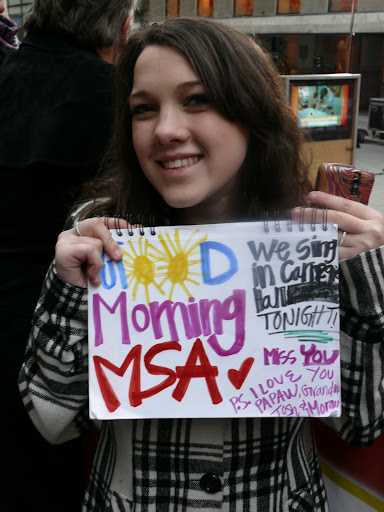 GOOD
Morning
MSA
We Sing
in Carnegie
Hall
TONIGHT!
MISS YOU
P.S. I LOVE YOU
PAPAW, Grandma
Josh, & Moran